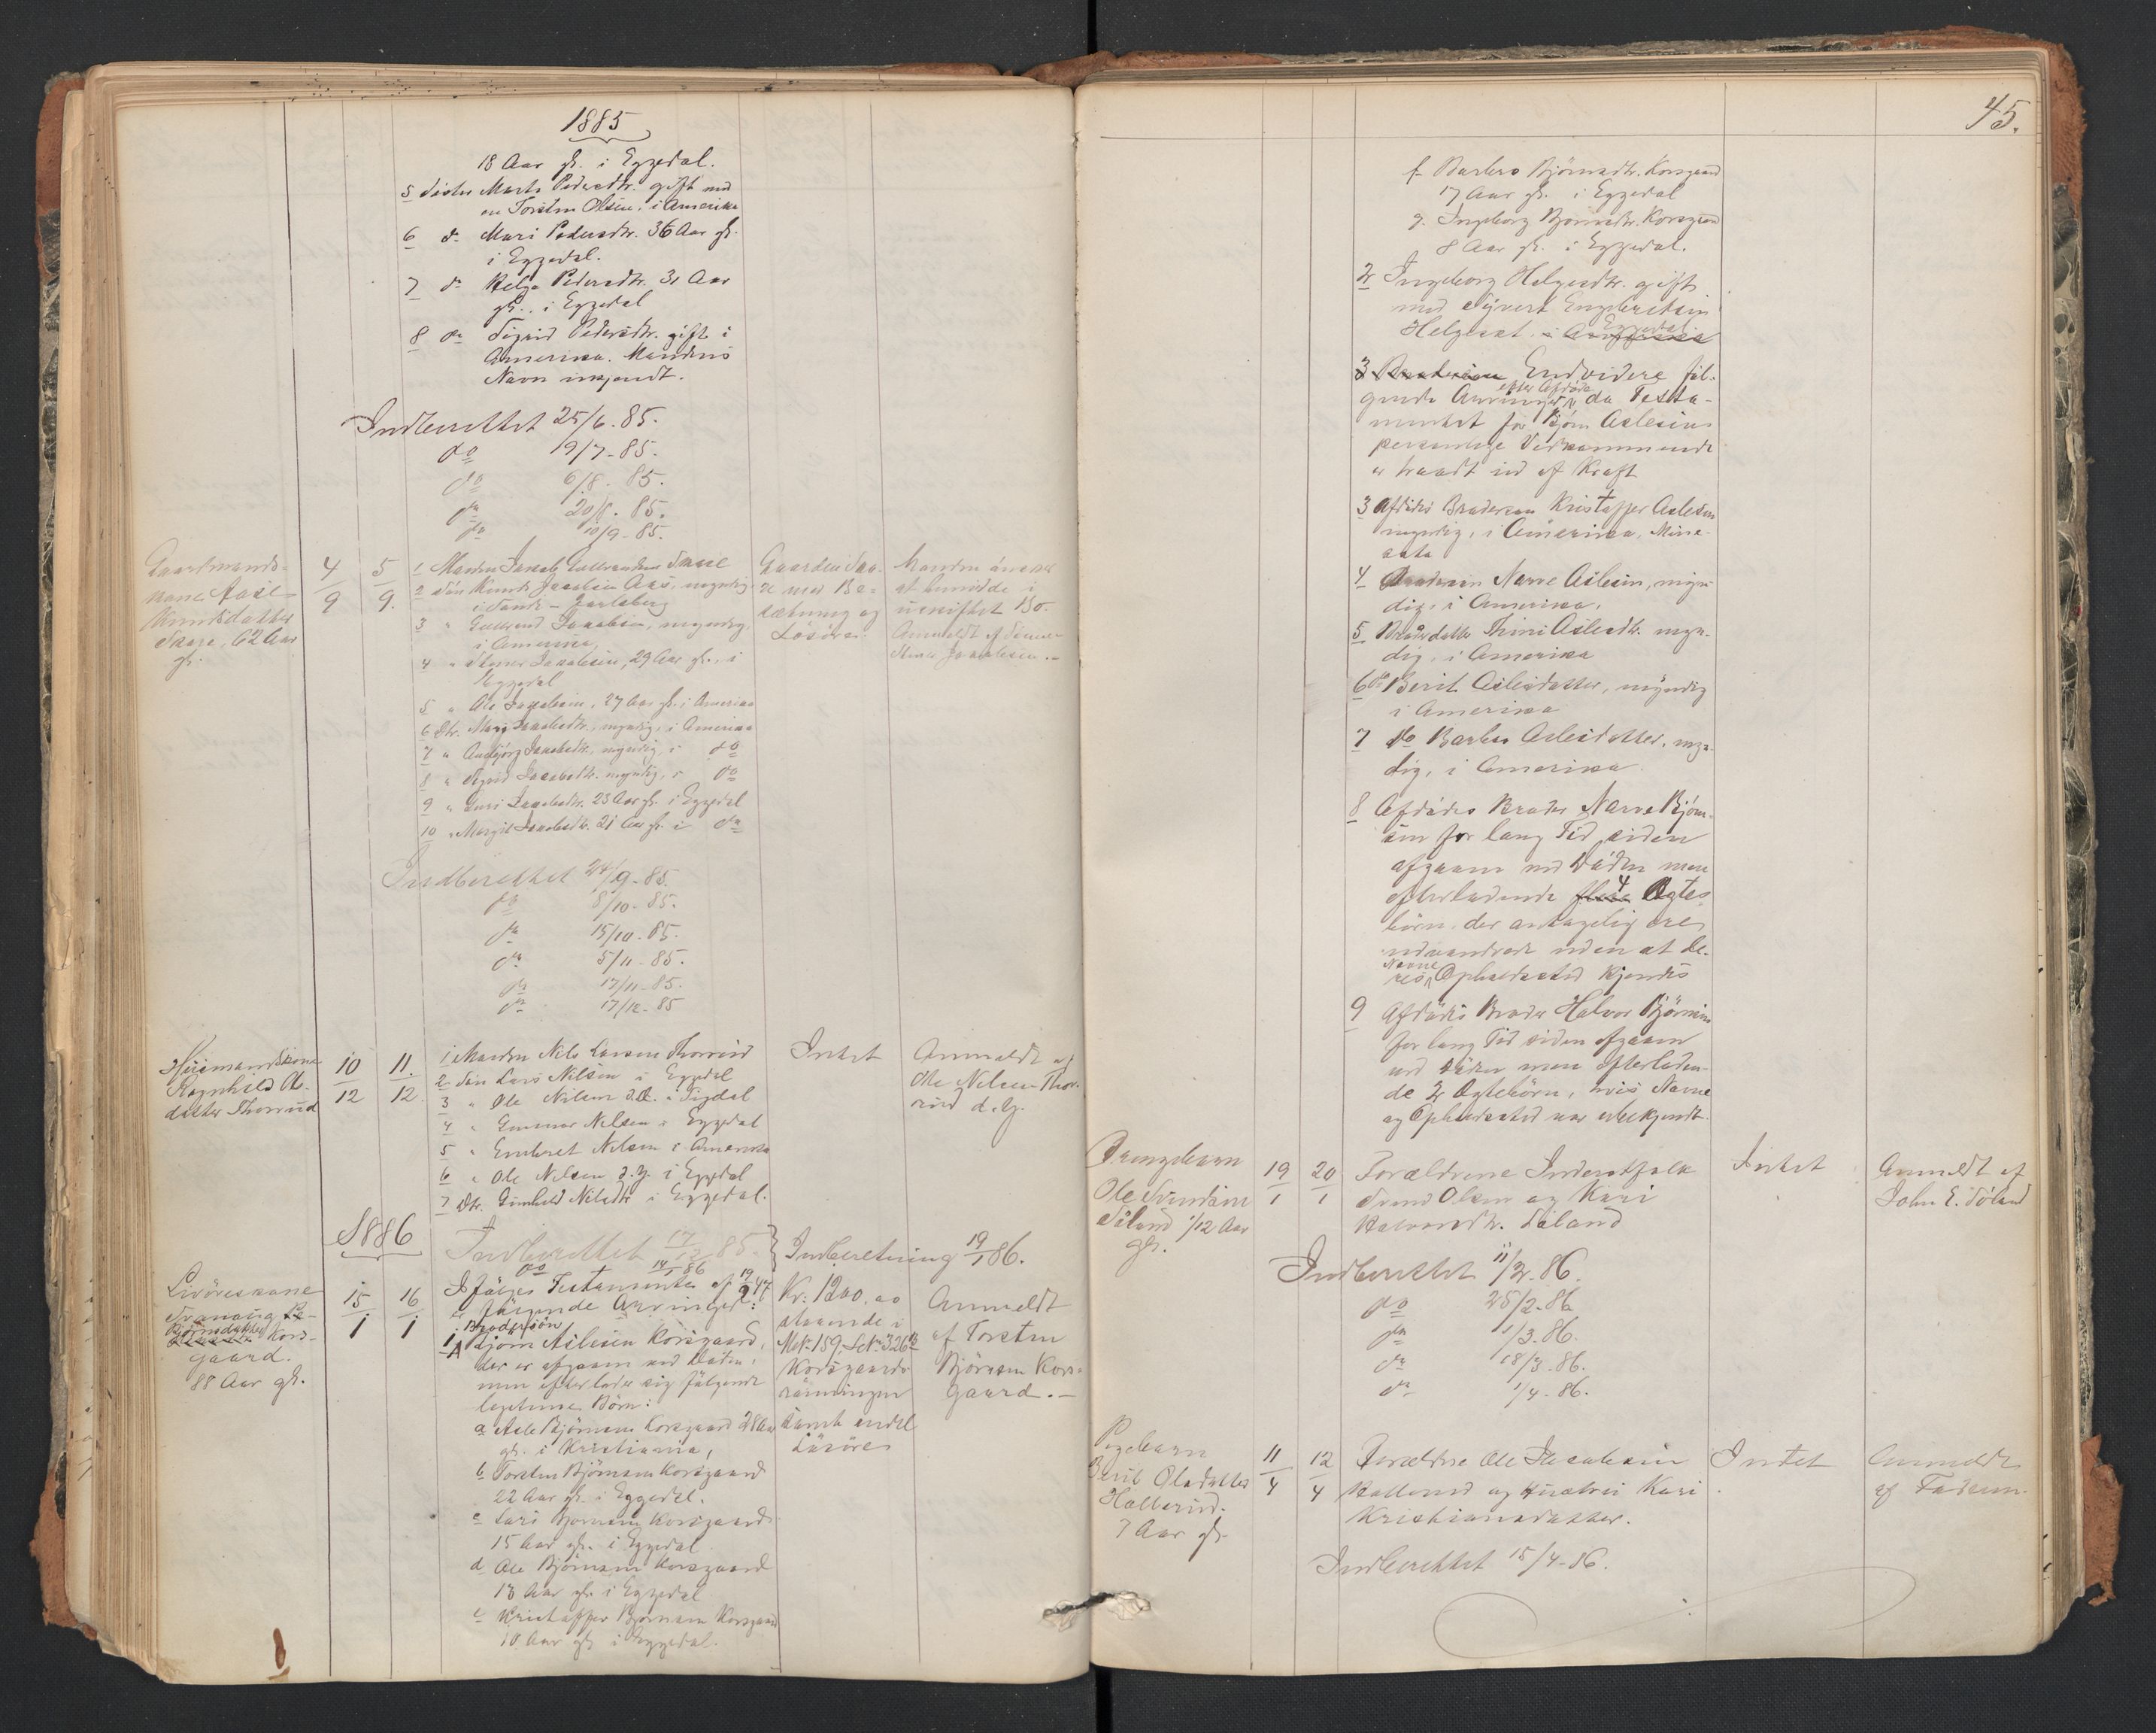 1885
18 Aar gl. i Eggedal.
5 Søster Marte Pedersdtr. gift med
en Torsten Olsen, i Amerika
6 do Mari Pedersdtr. 36 Aar gl.
i Eggedal.
7 do Helga Pedersdtr. 31 Aar
gl. i Eggedal
8 do Sigrid Pedersdtr. gift i
Amerika. Mandens
Navn ukjendt.
Indberettet 25/6. 85.
do 19/7-85.
do 6/8. 85.
do 20/8. 85.
do 10/9-85.
Gaardmands-
kone Aase
Knudsdatter
62 Aar
gl.
4/9
5/9.
1 Manden Jacob
2 Søn Knud Jacobsen myndig
i Sande - Jarlsberg
3 " Gulbrand Jacobsen, myndig,
i Amerika
4 " Jacobsen, 29 Aar gl., i
Eggedal
5 " Ole Jacobsen, 27 Aar gl. i Amerika
6 Dtr. Mari Jacobsdtr., myndig, i Amerika
7 " Jacobsdtr., myndig, i do
8 " Sigrid Jacobsdtr. myndig, i do
9 " Guri Jacobsdtr. 23 Aar gl. i Eggedal
10 " Margit Jacobsdtr. 21 Aar gl. i do
Gaarden
med Be-
sætning og
Løsøre.
Manden ønsker
at hensidde i
uskiftet Bo.
Anmeldt af Sønnen
Jacobsen.-
Indberettet 24/9-85.
do 8/10-85.
do 15/10-85.
do 5/11-85.
do 17/11-85.
do 17/12-85
Husmandskone
Ragnhild Ols-
datter Thorrud
10/12
11./12.
1 Manden Nils Larsen Thorrud
2 Søn Lars Nilsen i Eggedal
3 " Ole Nilsen d.Æ. i Sigdal
4 " Gunnar Nilsen i Eggedal
5 " Embret Nilsen i Amerika
6 " Ole Nilsen d.y. i Eggedal
7 Dtr. Gunhild Nilsdtr i Eggedal.
Intet
Anmeldt af
Ole Nilsen Thor-
rud d.y.
1886
Indberettet 17/12 85.
do 14/1 86
Indberetning 19/1 86.
Livøreskone
Bjørnsdatter Kors-
gaard.
88 Aar gl.
15/1
16/1
Ifølge Testamente af 19/9 47
følgende Arvinger:
Brodersøn
1 A Bjørn Aslesen Korsgaard,
der er afgaaen ved Døden,
men efterlader sig følgende
legitime Børn:
a Asle Bjørnsen Korsgaard 28 Aar
gl. i Kristiania,
b Torsten Bjørnsen Korsgaard
22 Aar gl. i Eggedal.
c Lars Bjørnsen Korsgaard
15 Aar gl. i Eggedal
d Ole Bjørnsen Korsgaard
13 Aar gl. i Eggedal
e Kristoffer Bjørnsen Korsgaard
10 Aar gl. i Eggedal.
Kr. 1200.00
staaende i
Mat. 159. Lb. 326
Korsgaards-
samt endel
Løsøre
Anmeldt
af Torsten
Bjørnsen Kors-
gaard.-
45.
f Barbro Bjørnsdtr. Korsgaard
17 Aar gl. i Eggedal
g. Ingeborg Bjørnsdtr. Korsgaard
8 Aar gl. i Eggedal.
2 Ingeborg Helgesdtr. gift
med Syvert Engebretsen
Helgeset i Amerika Eggedal
3 Brodersøn Endvidere føl-
gende Arvinger efter Afdøde da Testa-
mentet for Bjørn Aslesens
personlige Vedkommende
er traadt ud af Kraft
3 Afdødes Brodersøn Kristoffer Aslesen
myndig, i Amerika, Minne-
sota
4 Brodersøn Narve Aslesen, myn-
dig, i Amerika,
5 Broderdatter Aslesdtr. myn-
dig, i Amerika
6 do Berit Aslesdatter, myndig
i Amerika
7 do Barbro Aslesdatter, myn-
dig, i Amerika
8 Afdødes Broder Narve Bjørn-
sen for lang Tid siden
afgaaen ved Døden men
efterladende flere 4 Ægte-
børn, der antagelig ere
udvandrede uden at de-
res Navne Opholdssted kjendes
9 Afdødes Broder Halvor Bjørnsen
for lang Tid siden afgaaen
ved Døden men efterladen-
de 2 Ægtebørn, hvis Navne
og Opholdssted var ubekjendt.
Drengebarn
Ole Svendsen
Søland 1/12 Aar
gl.
19/1
20/1
Forældrene Inderstfolk
Svend Olsen og Kari
Halvorsdtr. Søland
Intet
Anmeldt af
John E. Søland
Indberettet 11/2. 86.
do 25/2-86
do 11/3. 86.
do 18/3. 86.
do 1/4-86.
Pigebarn
Berit Olsdatter
Hallerud.
7 Aar gl.
11/4
12/4
Forældre Ole Jacobsen
Hallerud og Hustru Kari
Kristiansdatter.
Intet
Anmeldt
af Faderen.
Indberettet 15/4-86.